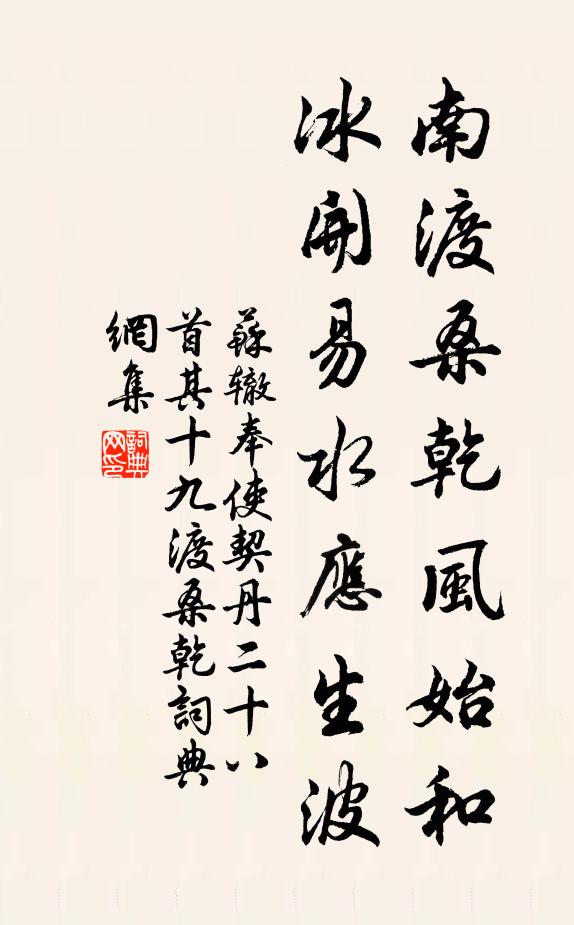 南渡桑乾風始和
冰開易水應生波
蘇轍奉使契丹二十八
首其十九渡桑乾詞典
網集
詞典
网印